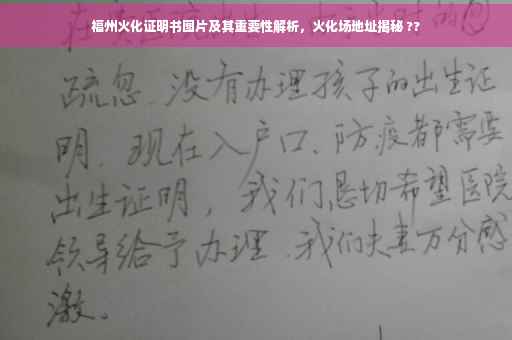 福州火化证明书图片及其重要性解析，火化场地址揭秘 ??
疏忽、没有办理孩子的出生证
明、现在入户口、防疫都需要
出生证明，我们恳切希望医院
领导给予办理、我们夫妻万分感
激。